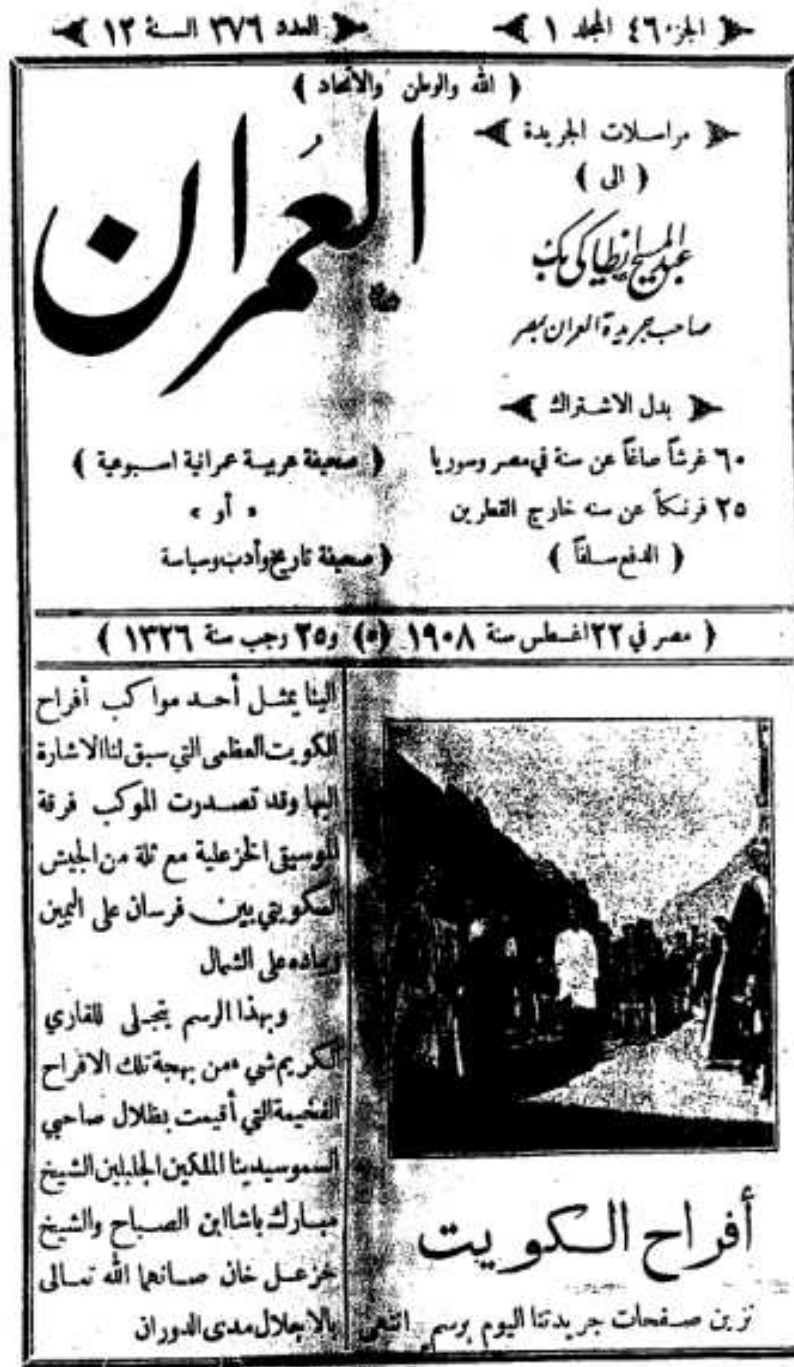 الجزء ٤٦ المجلد ١
العدد ٣٧٦ السنة ١٢
( الله والوطن والاتحاد )
مراسلات الجريدة
( الى )
عبد المسيح انطاكي بك
صاحب جريدة العمران بمصر
العُمران
بدل الاشتراك
٦٠ غرشاً صاغاً عن سنة في مصر وسوريا
٢٥ فرنكاً عن سنه خارج القطرين
( الدفع سلفاً )
( صحيفة عربية عمرانية اسبوعية )
« أو »
( صحيفة تاريخ وأدب وسياسة
( مصر في ٢٢ اغسطس سنة ١٩٠٨ (٥) و٢٥ رجب سنة ١٣٢٦ )
أفراح الكويت
نزين صفحات جريدتنا اليوم برسم انتهى
الينا يمثل أحد مواكب أفراح
الكويت العظمى التي سبق لنا الاشارة
اليها وقد تصدرت الموكب فرقة
الموسيقى الخزعلية مع ثلة من الجيش
الكويتي بين فرسان على اليمين
على الشمال
وبهذا الرسم يتجلى للقاري
الكريم شيء من بهجة تلك الافراح
الفخيمة التي أقيمت بظلال صاحبي
السمو سيدينا الملكين الجليلين الشيخ
مبارك باشا ابن الصباح والشيخ
خزعل خان صانهما الله تعالى
بالاجلال مدى الدوران